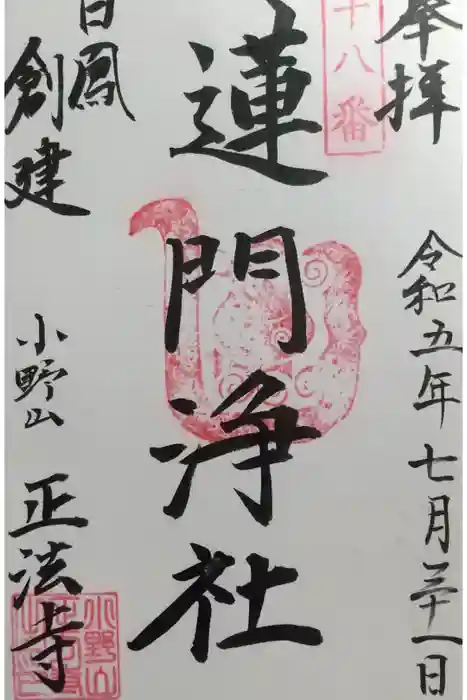 奉拝
令和五年七月三十一日
十八番
蓮門浄社
白鳳
創建
小野山
正法寺
小野山